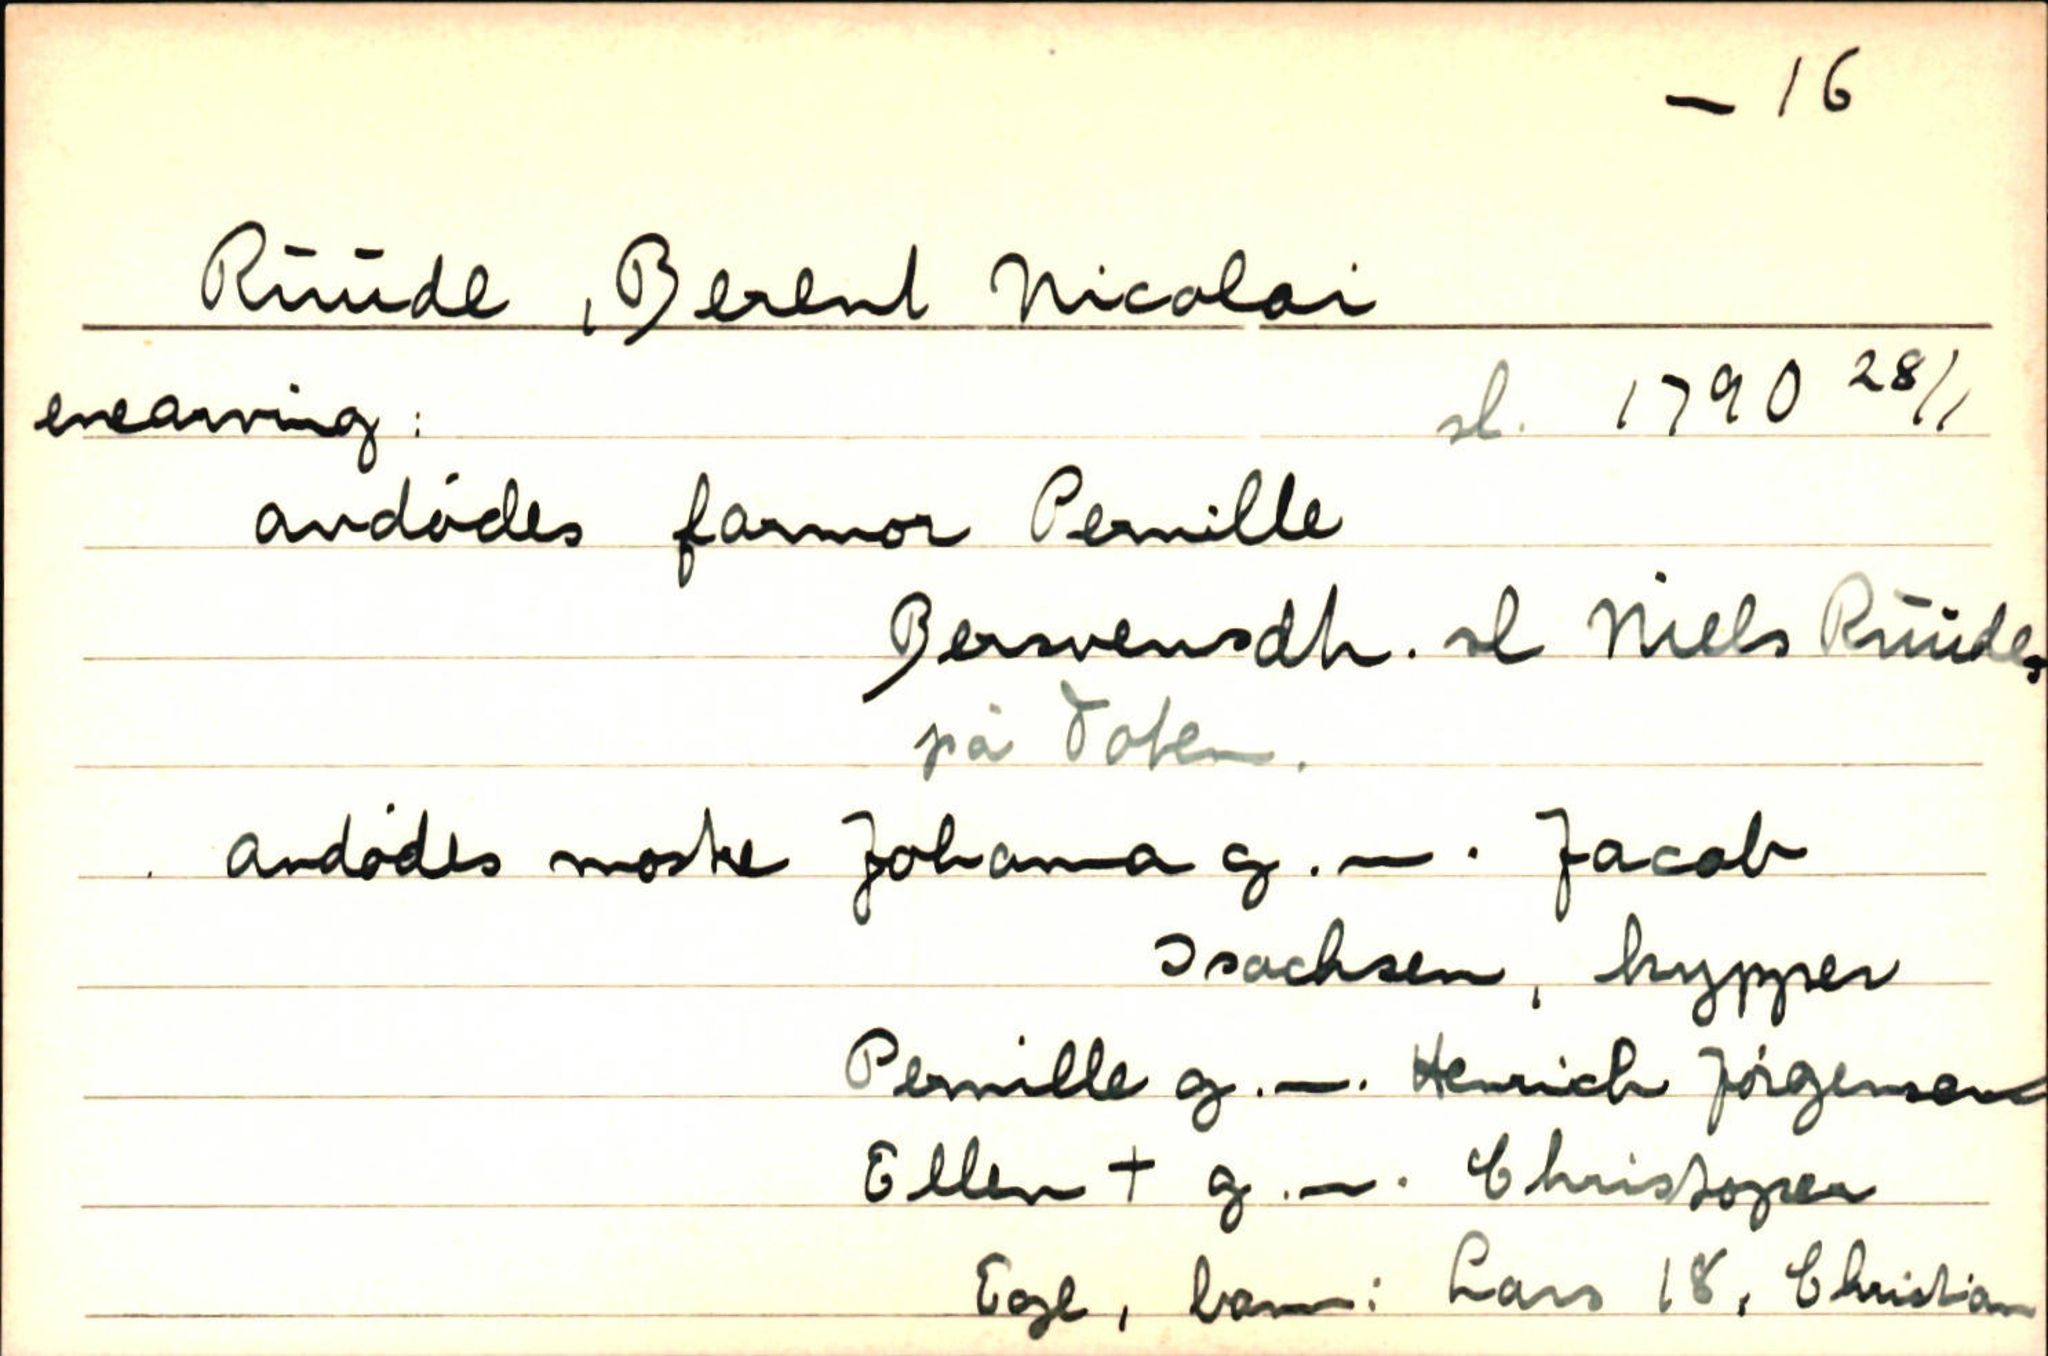 — 16
Rüüde, Berent Nicolai
enearving: sl. 1790 28/1
avdødes farmor Pernille
Bersvensdh. sl Niels Rüüdes
på Toten.
avdødes moster Johanna g.—. Jacob
Isachsen, kypper
Pernille g.—. Henrich Jørgensen
Ellen + g.—. Christoper
Ege, barn: Lars 18, Christian